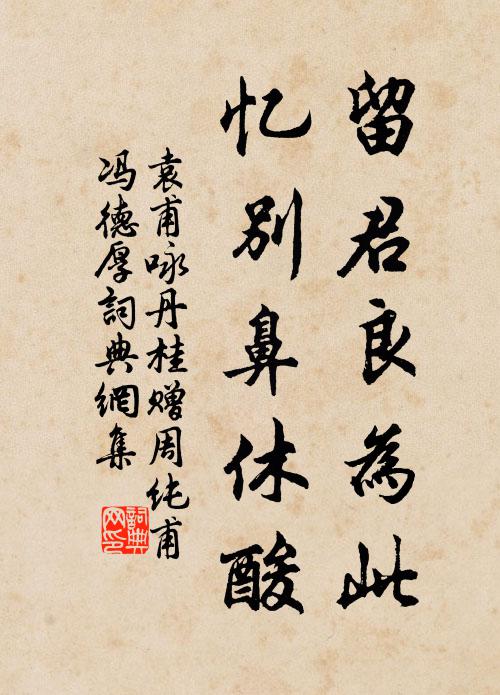 留君良為此
忆别鼻休酸
袁甫咏丹桂赠周纯甫
冯德厚詞典網集
詞典網印